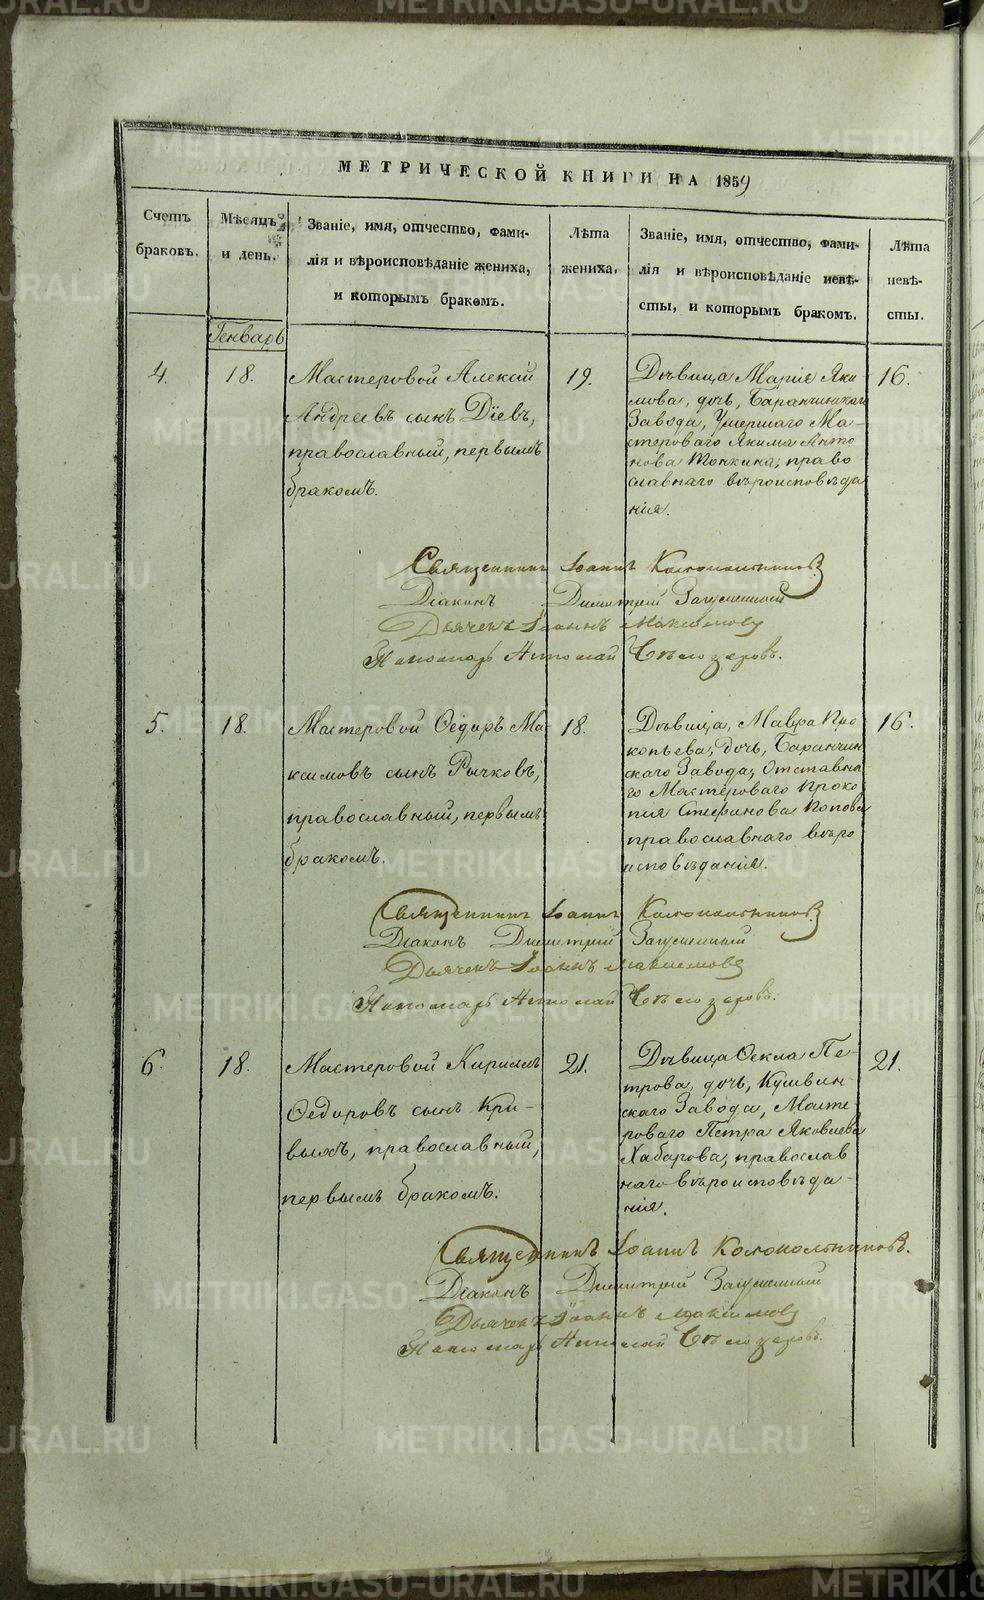 МЕТРИЧЕСКОЙ КНИГИ НА 1859
Счетъ
браковъ.
Мѣсяцъ
и день.
Званіе, имя, отчество, фами-
лія и вѣроисповѣданіе жениха,
и которымъ бракомъ.
Лѣта
жениха.
Званіе, имя, отчество, фами-
лія и вѣроисповѣданіе невѣ-
сты, и которымъ бракомъ.
Лѣта
невѣ-
сты.
Генварь
4.
18.
Мастеровой Алексій
Андреевъ сынъ Діевъ,
православный, первымъ
бракомъ.
19.
Дѣвица Марія Яки
мова, дочь, Баранчинскаго
Завода, Умершаго Ма-
стероваго Якима Анто
нова Тонкина, право
славнаго вѣроисповѣда
нія.
16.
Священникъ Іоаннъ Колокольниковъ
Діаконъ Димитрій
Дьячекъ Іоаннъ Максимовъ
Пономарь
5.
18.
Мастеровой Ѳедоръ Ма-
ксимовъ сынъ Рычковъ,
православный, первымъ
бракомъ.
18.
Дѣвица, Мавра Про
копьева, дочь, Баранчин
скаго Завода, Отставна-
го Мастероваго Проко
пія Стефанова Попова
православнаго вѣро
исповѣданія.
16.
Священникъ Іоаннъ Колокольниковъ
Діаконъ Димитрій
Дьячекъ Іоаннъ Максимовъ
Пономарь
6.
18.
Мастеровой Кириллъ
Ѳедоровъ сынъ Кри-
выхъ, православный,
первымъ бракомъ.
21.
Дѣвица Ѳекла Пе-
трова, дочь, Кушвин-
скаго Завода, Масте
роваго Петра Яковлева
Хабарова, православ
наго вѣроисповѣда-
нія.
21.
Священникъ Іоаннъ Колокольниковъ.
Діаконъ Димитрій
Дьячекъ Іоаннъ Максимовъ
Пономарь
METRIKI.GASO-URAL.RU